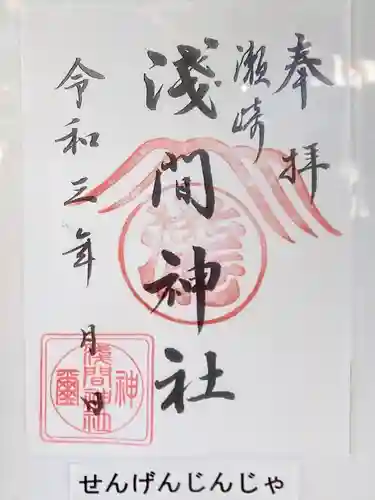 奉拝
瀬崎
浅間神社
令和三年 月 日
浅間神社
神璽
せんげんじんじゃ